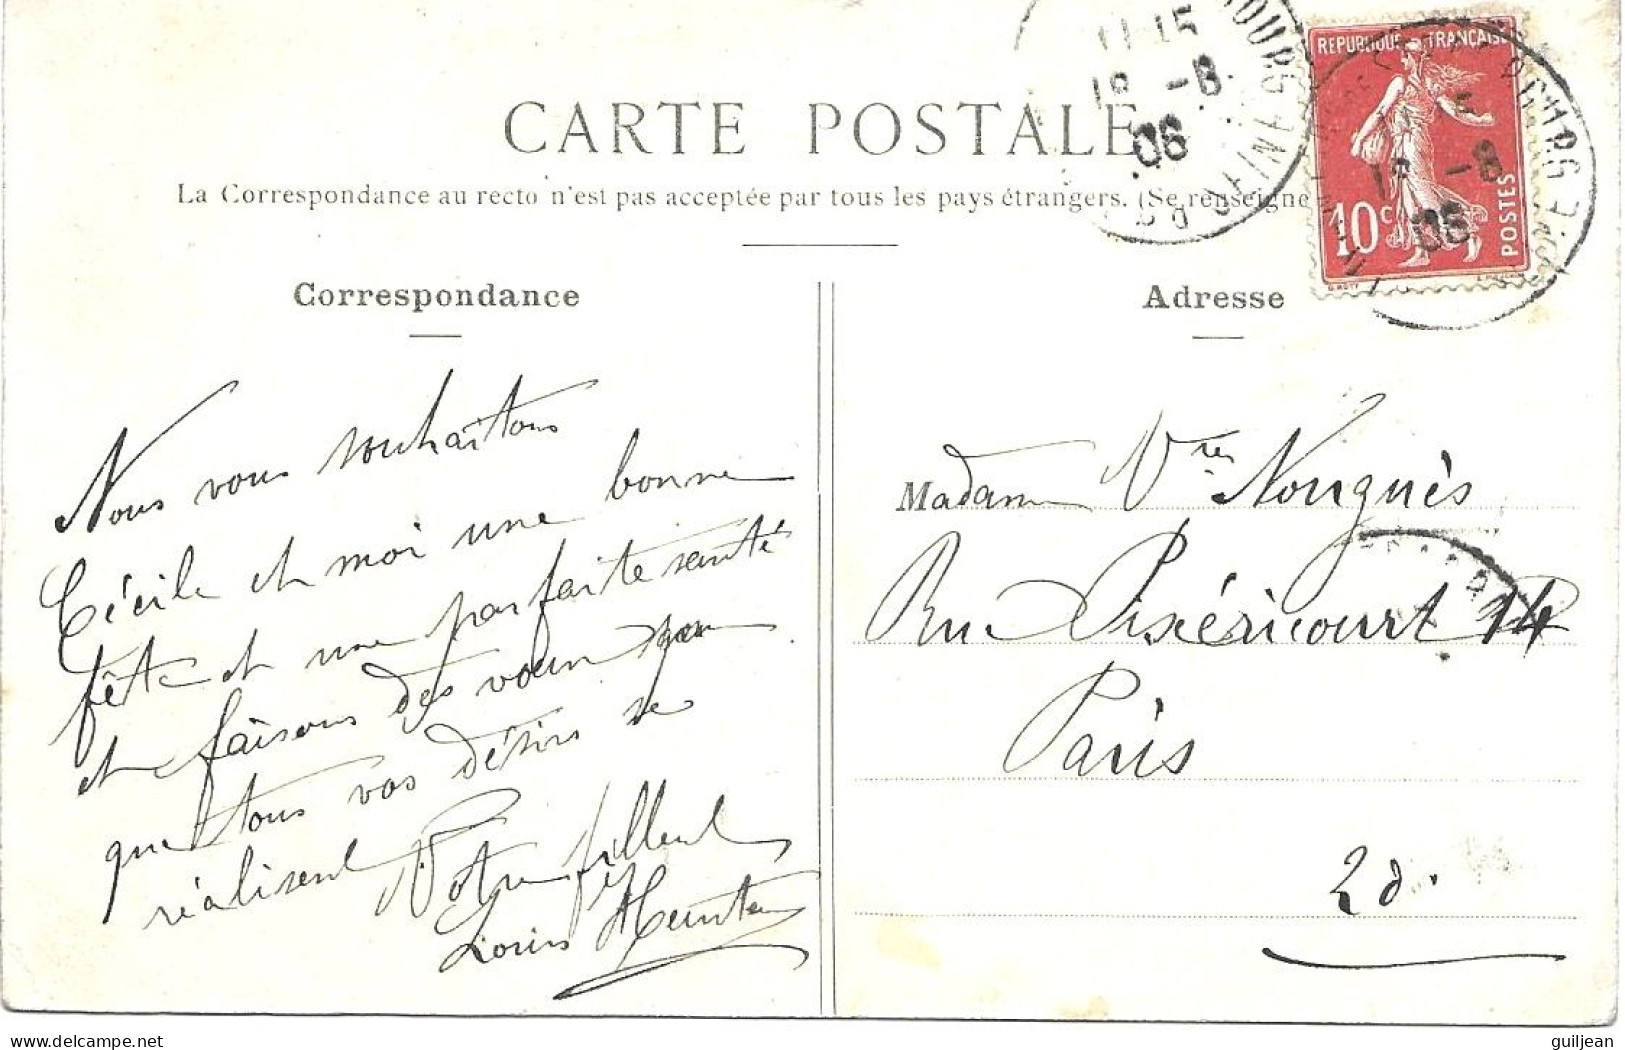 CARTE POSTALE
La Correspondance au recto n'est pas acceptée par tous les pays étrangers. (Se renseigne
Correspondance
Nous vous souhaitons
Cécile et moi une bonne
fête et une parfaite santé
et faisons des vœux pour
que tous vos désirs se
réalisent Votre filleul
Louis
Adresse
Madame Vve Nouguès
Rue Pixéricourt 14
Paris
2d.
REPUBLIQUE FRANÇAISE
10c
POSTES
11 15
18 -8
06
18 -8
06
guiljean